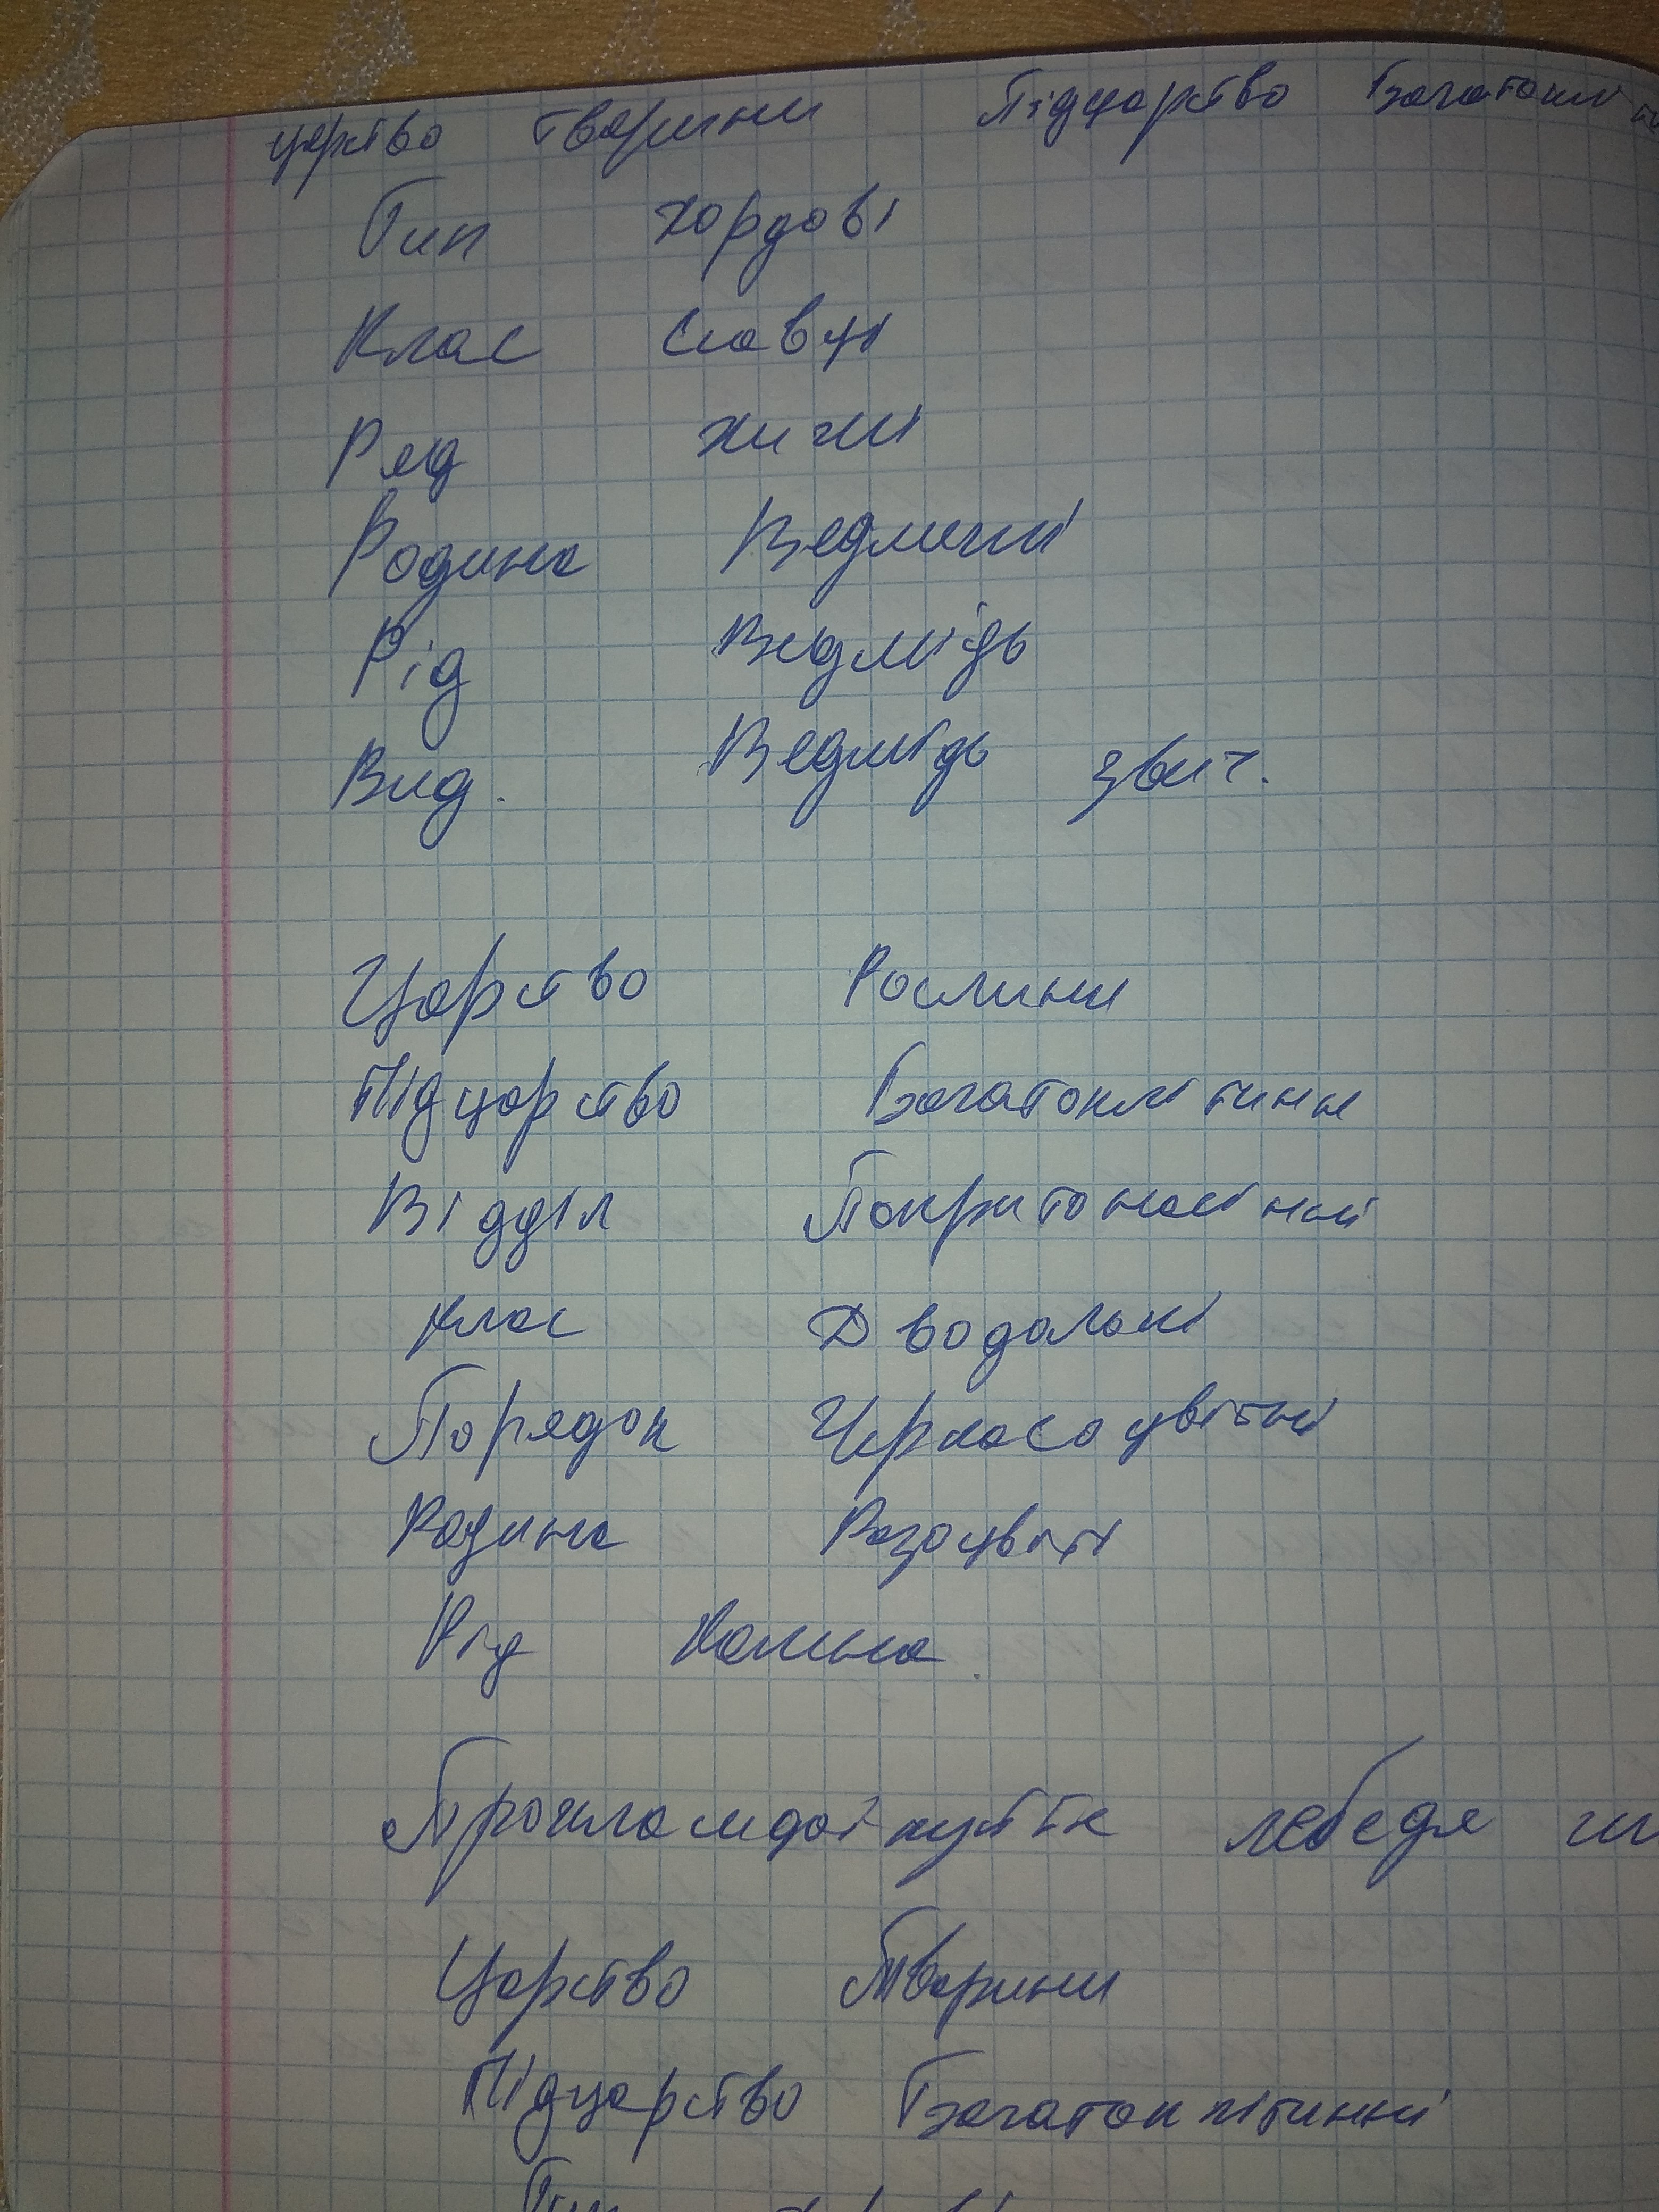 царство тварини Підцарство Багатоклі
Тип хордові
Клас Ссавці
Ряд хижі
Родина Ведмежі
Рід Ведмідь
Вид. Ведмідь звич.
Царство Рослини
Підцарство Багатоклітинні
Відділ Покритонасінний
клас Дводольні
Порядок Черкасоцвітні
Родина Розоцвіті
Рід Калина.
лебедя
Царство Тварини
Підцарство Багатоклітинні
Тип